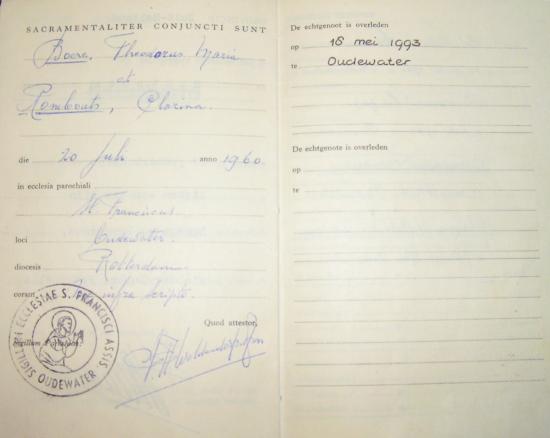 SACRAMENTALITER CONJUNCTI SUNT
Boere, Theodorus Maria
et
Rombouts, Clasina.
die 20 Juli anno 1960.
in ecclesia parochiali
St Franciscus
loci Oudewater.
diocesis Rotterdam
coram infra scripto.
Quod attestor,
Sigillum Parochiae:
SIGILLUM ECCLESIAE S. FRANCISCI ASSIS
OUDEWATER
De echtgenoot is overleden
op 18 mei 1993
te Oudewater
De echtgenote is overleden
op
te